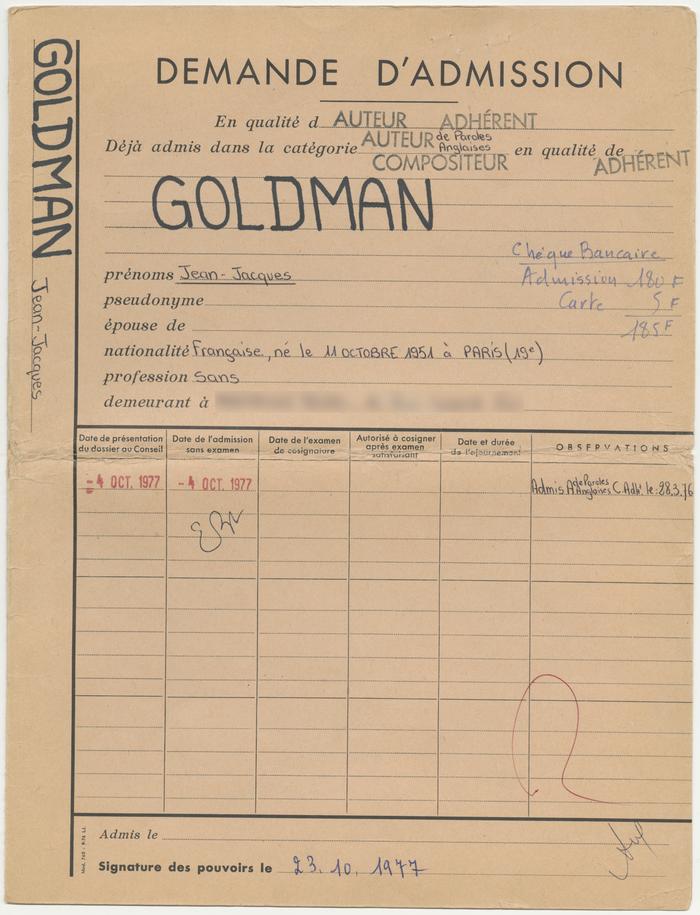 GOLDMAN Jean-Jacques
DEMANDE D'ADMISSION
En qualité d AUTEUR ADHÉRENT
Déjà admis dans la catégorie AUTEUR de Paroles Anglaises COMPOSITEUR en qualité de ADHÉRENT
GOLDMAN
Chèque Bancaire
prénoms Jean-Jacques
Admission 180 F
pseudonyme
Carte 5 F
épouse de
185 F
nationalité Française, né le 11 OCTOBRE 1951 à PARIS (19e)
profession Sans
demeurant à
Date de présentation du dossier au Conseil
Date de l'admission sans examen
Date de l'examen de cosignature
Autorisé à cosigner après examen satisfaisant
Date et durée de l'ajournement
OBSERVATIONS
-4 OCT. 1977
-4 OCT. 1977
Admis A de Paroles Anglaises C. Adht. le: 28.3.76
Admis le
Signature des pouvoirs le 23. 10. 1977